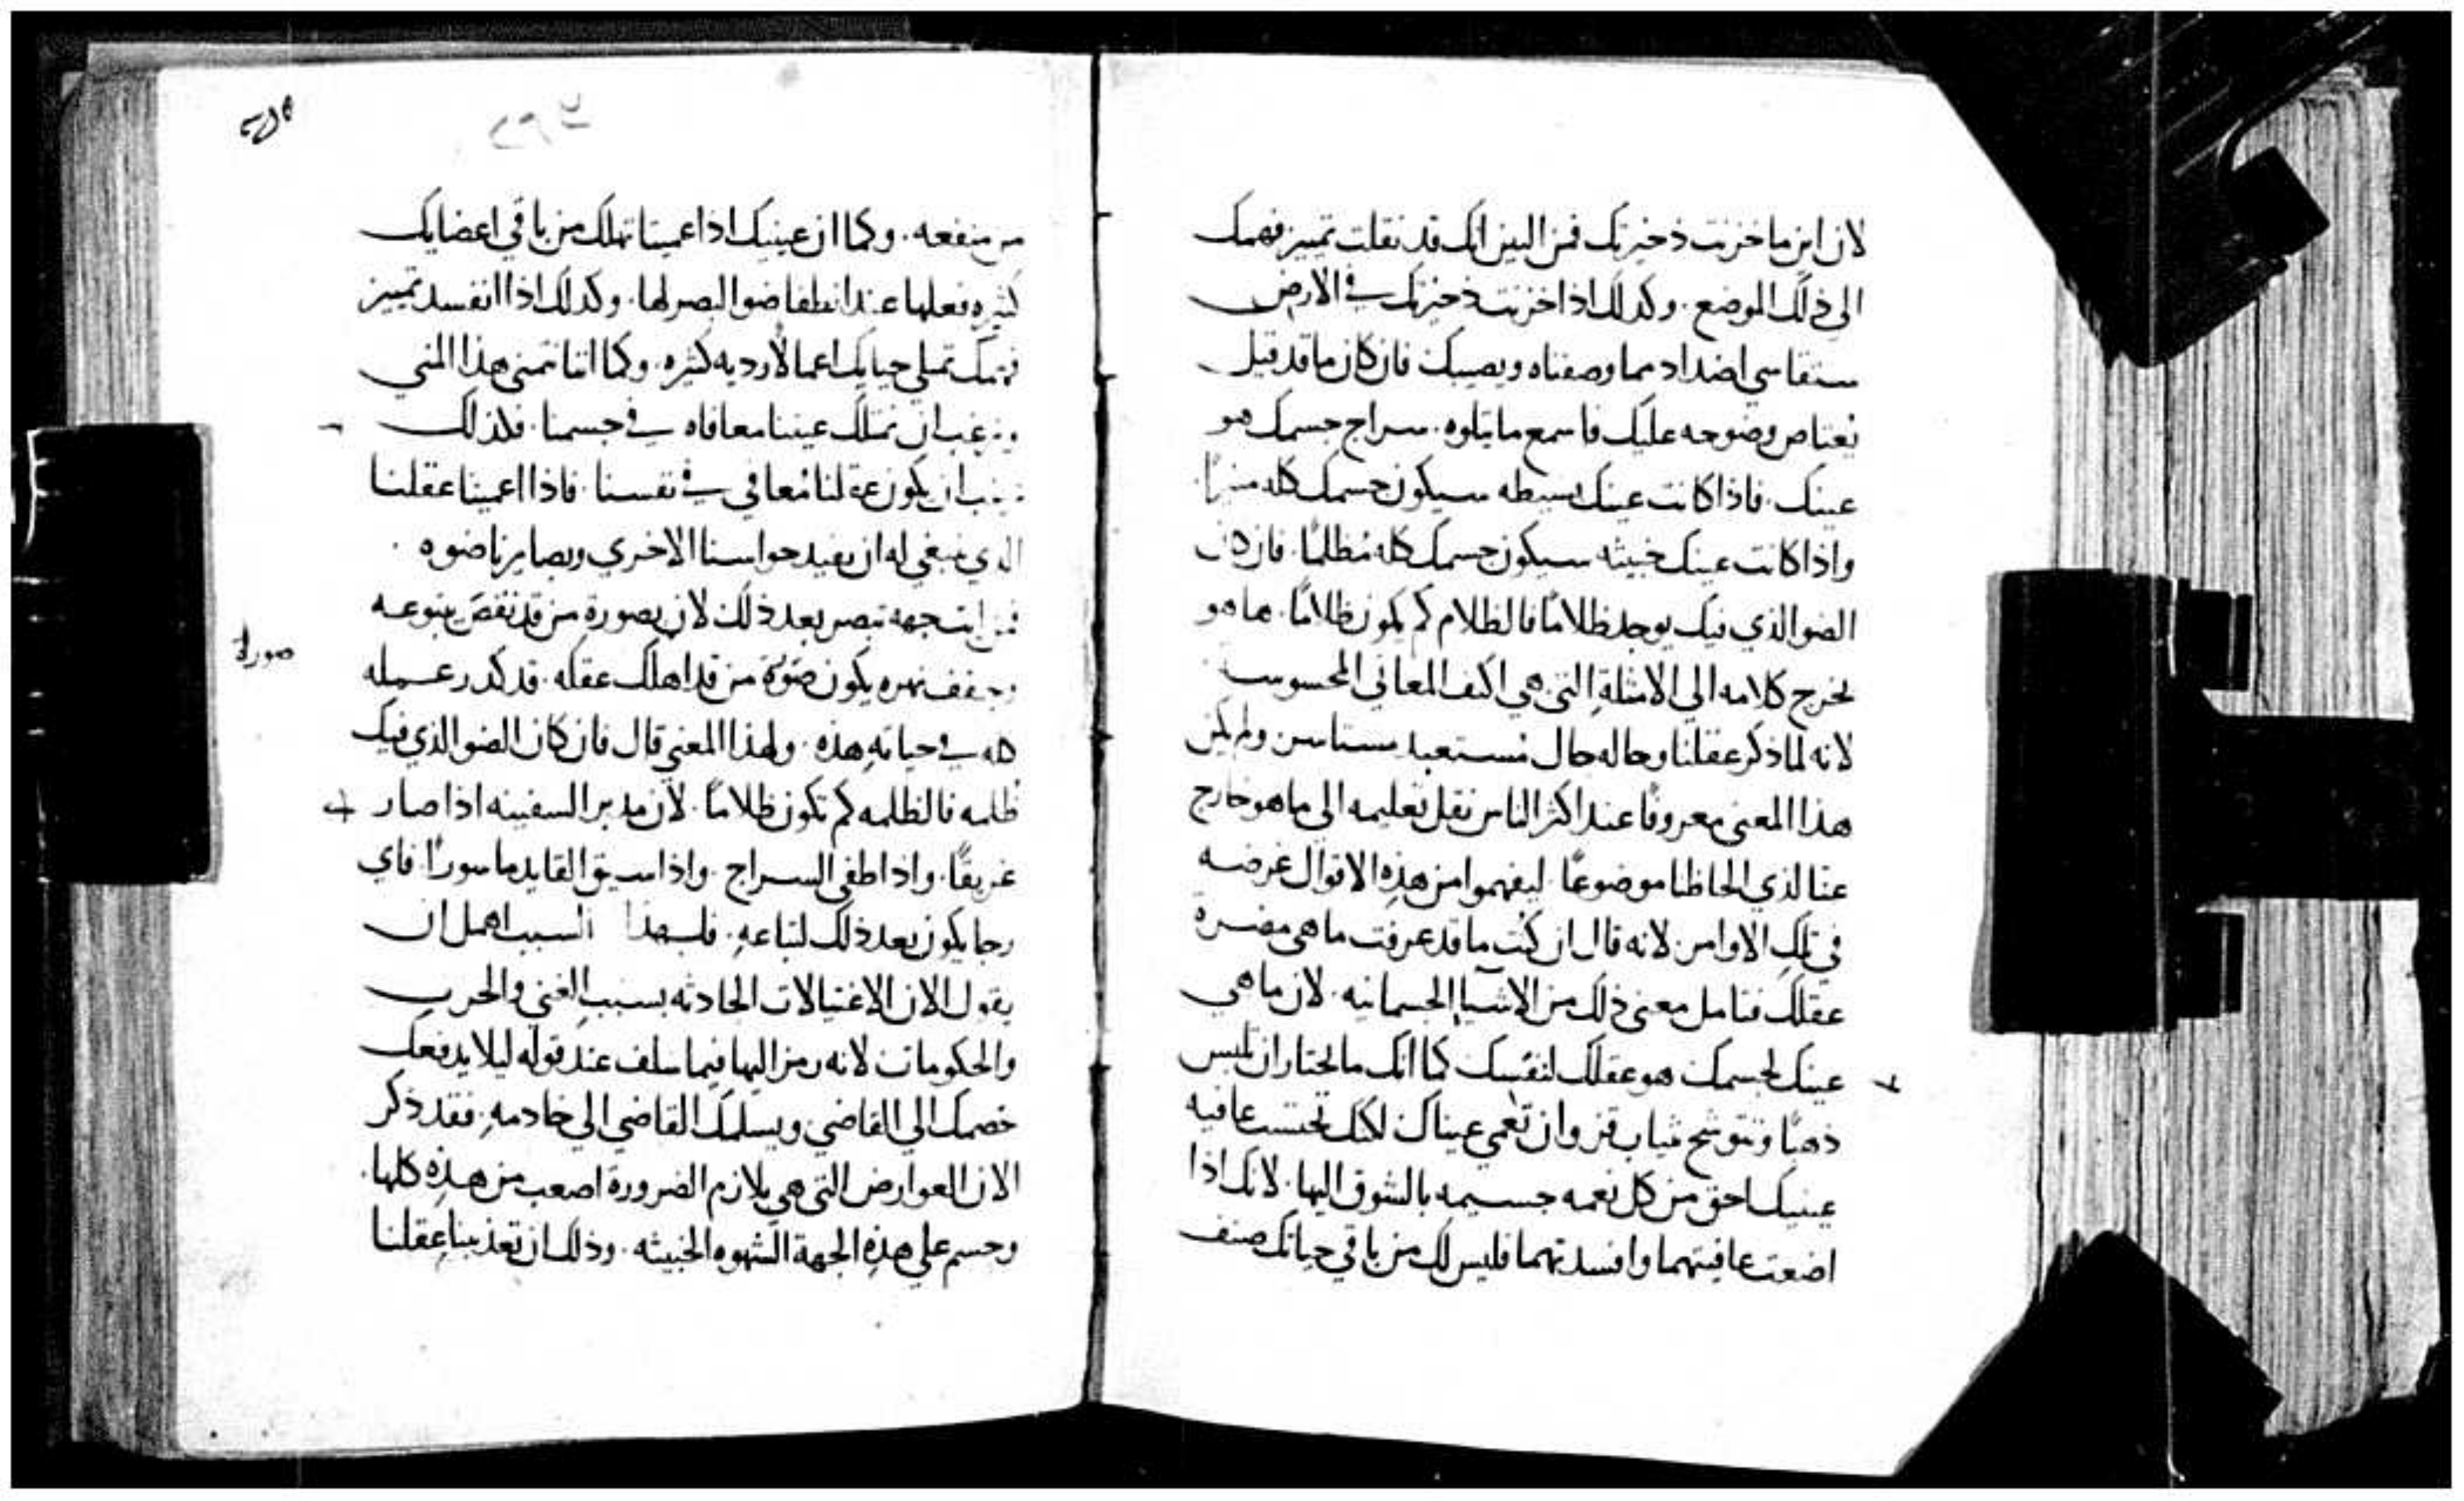 لان اين ما خزنت ذخيرتك فمن البين انك قد نقلت تمييز فهمك
الى ذلك الموضع. وكذلك اذا خزنت ذخيرتك في الارض
ستقاسي اضداد مما وصفناه ويصيبك فان كان ما قد قيل
يعتاص وضوحه عليك فاسمع ما يتلوه. سراج جسمك هو
عينك. فاذا كانت عينك بسيطه سيكون جسمك كله منيرًا.
واذا كانت عينك خبيثه سيكون جسمك كله مُظلمًا. فان كان
الضو الذي فيك يوجد ظلامًا فالظلام كم يكون ظلامًا. ها هو
يخرج كلامه الي الامثلةِ التي هي اكثف المعاني المحسوسه
لانه لما ذكر عقلنا وحاله حال مُستعبد مستاسر ولم يكن
هذا المعنى معروفًا عند اكثر الناس نقل تعليمه الى ما هو خارج
عنا لذي الحاظنا موضوعًا. ليفهموا من هذِه الاقوال غرضه
في تلك الاوامر. لانه قال ان كُنت ما قد عرفت ما هي مضرة
عقلك فتامل معنى ذلك من الاشيآ الجسمانيه. لان ما هي
عينك لجسمك هو عقلك لنفسِك كما انك ما تختار ان تلبس
ذهبًا وتتوشح ثياب قز وان تَعمي عيناك لكنك تحتسب عافيه
عينيك احق من كل نعمه جسيمه بالشوق اليها. لانك اذا
اضعت عافيتهما وافسدتهما فليس لك من باقي حياتك صنف
من منفعه. وكما ان عينيك اذا عميتا تهلك من باقي اعضايك
كثيره فعلها عند انطفا ضو البصر لها. وكذلك اذا انفسد تمييز
فهمك تمتلي حياتك اعمالاً رديه كثيره. وكما اننا نتمنى هذا المني
ونرغب ان نمتلك عيننا معافاه في جسمنا. فلذلك
يجب ان يكون عقلنا مُعافي في نفسنا. فاذا اعمينا عقلنا
الذي ينبغي له ان يفيد حواسنا الاخري وبصايرنا ضوه.
فمن اية جهه تبصر بعد ذلك لان بصورةِ من قد نقض ينبوعه
وجفف نهره يكون صورة من قد اهلك عقله. قد كدر عمله
كله في حياتهِ هذه. ولهذا المعنى قال فان كان الضو الذي فيك
ظلمه فالظلمه كم تكون ظلامًا. لان مدبر السفينه اذا صار
غريقًا. واذا طفي السراج. واذا سيق القايد ماسورًا. فاي
رجا يكون بعد ذلك لتباعهِ. فلهذا السبب اهمل ان
يقول الان الاغتيالات الحادثه بسببِ الغني والحرب
والحكومات لانه رمز اليها فيما سلف عند قوله ليلا يدفعك
خصمك الي القاضي ويسلمك القاضي الي خادمهِ. فقد ذكر
الان العوارض التي هي يلازم الضرورة اصعب من هذِه كلها.
وحسم علي هذِه الجهة الشهوه الخبيثه. وذلك ان تعذيبنا عقلنا
صورة